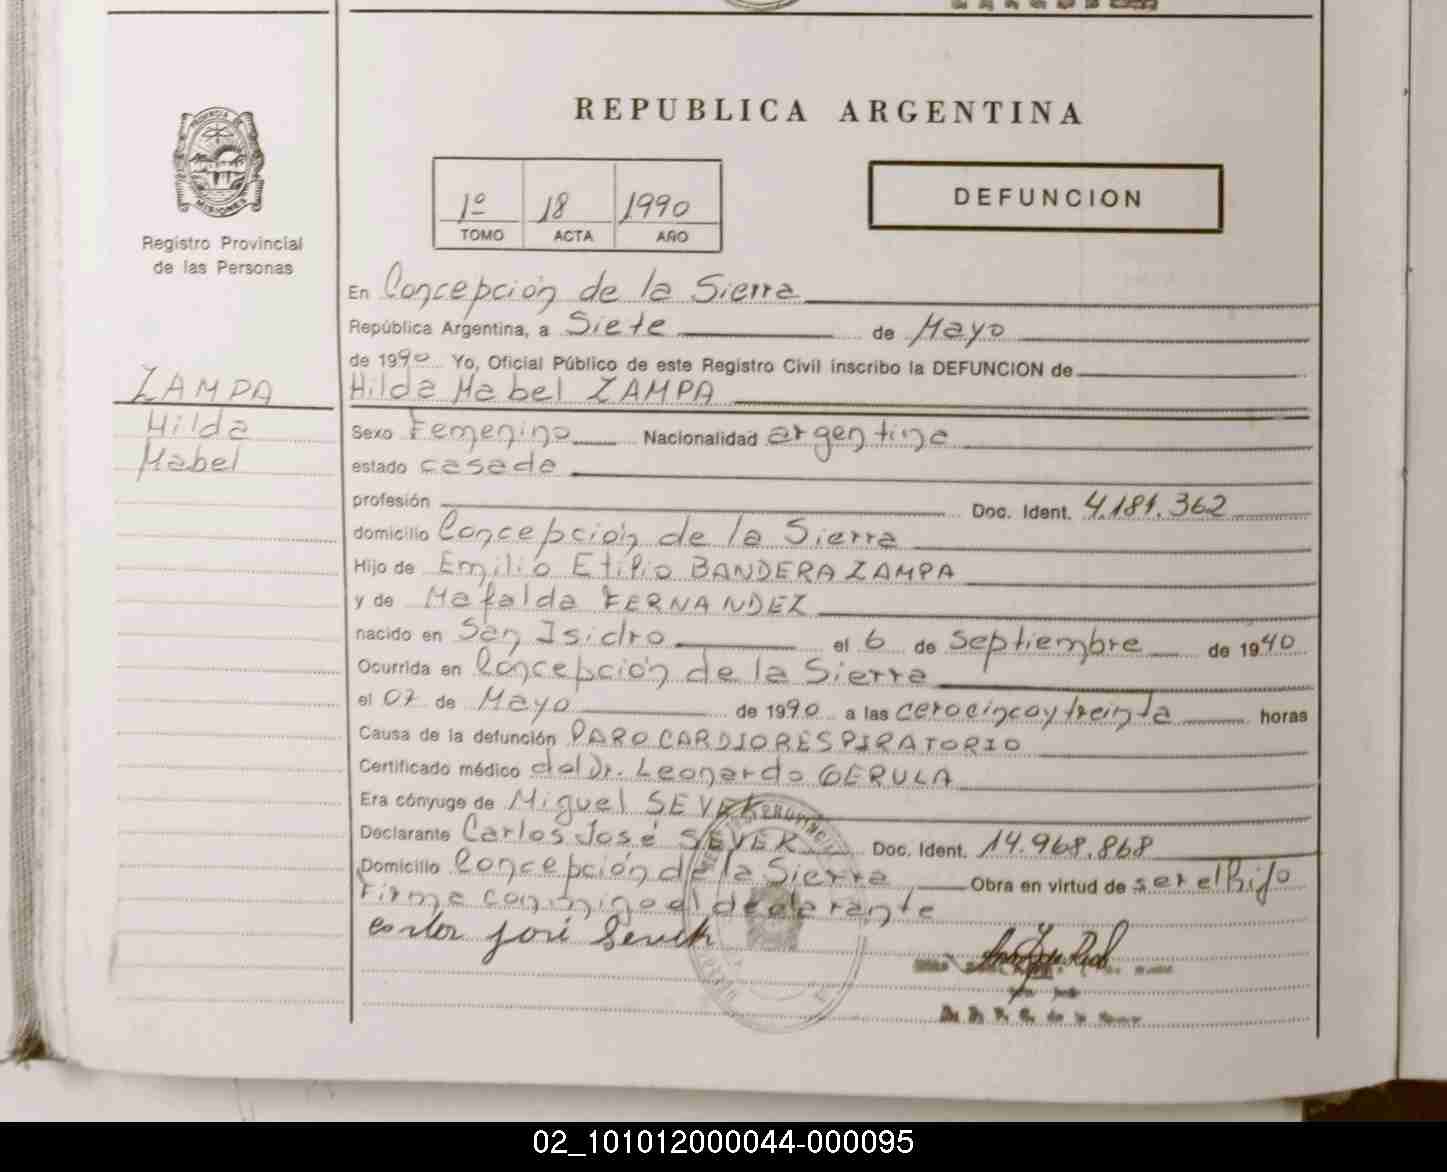 REPUBLICA ARGENTINA
1º 18 1990
TOMO ACTA AÑO
DEFUNCION
PROVINCIA DE
MISIONES
Registro Provincial
de las Personas
ZAMPA
Hilda
Mabel
En Concepción de la Sierra
República Argentina, a Siete de Mayo
de 1990 Yo, Oficial Público de este Registro Civil inscribo la DEFUNCION de
Hilda Mabel ZAMPA
Sexo Femenino Nacionalidad argentina
estado casada
profesión Doc. Ident. 4.181.362
domicilio Concepción de la Sierra
Hijo de Emilio BANDERA ZAMPA
y de Mafalda FERNANDEZ
nacido en San Isidro el 6 de Septiembre de 1940
Ocurrida en Concepción de la Sierra
el 07 de Mayo de 1990 a las cerocincoytreinta horas
Causa de la defunción PARO CARDIORESPIRATORIO
Certificado médico del Dr. Leonardo GERULA
Era cónyuge de Miguel SEVEK
Declarante Carlos José SEVEK Doc. Ident. 14.968.868
Domicilio Concepción de la Sierra Obra en virtud de ser el hijo
Firma conmigo el declarante
Carlos José Sevek
02_101012000044-000095